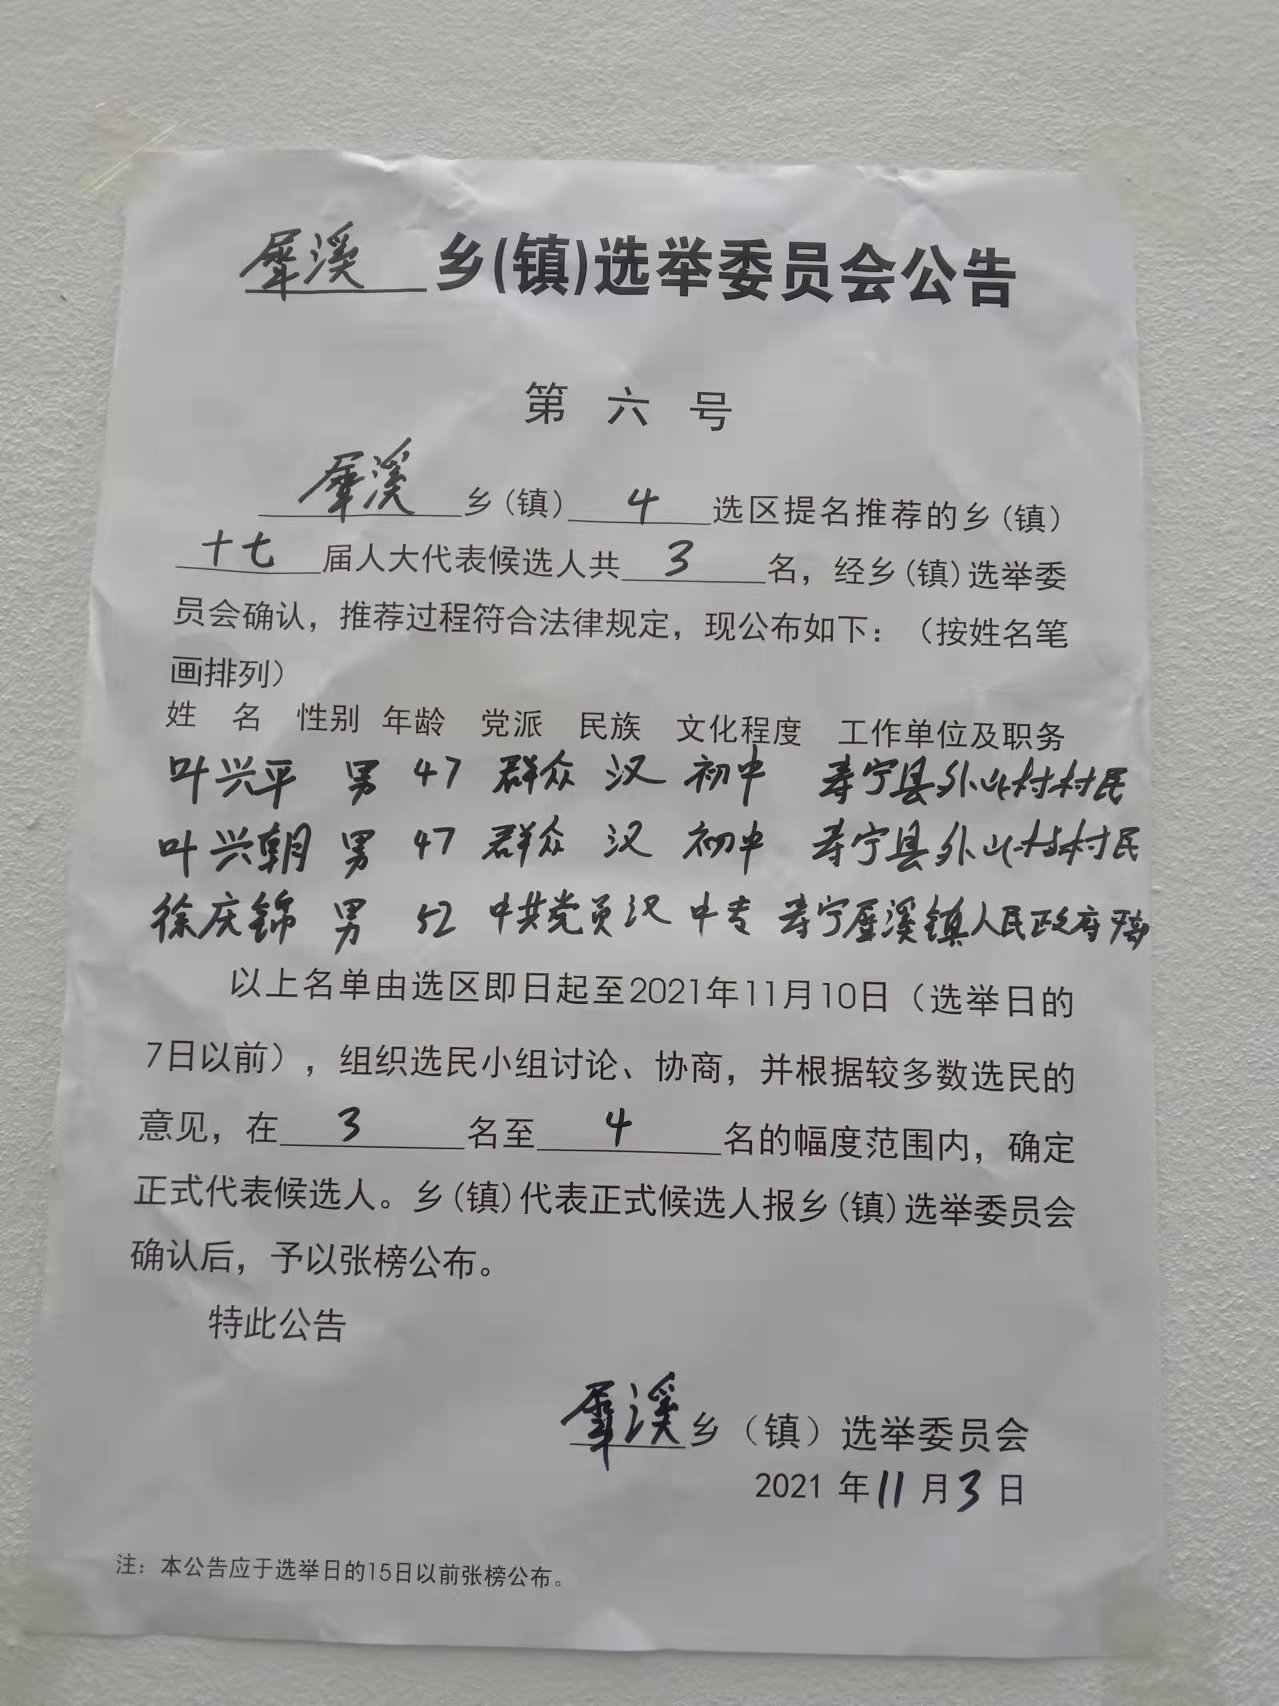 犀溪乡(镇)选举委员会公告
第六号
犀溪乡(镇)4选区提名推荐的乡(镇)
十七届人大代表候选人共3名，经乡(镇)选举委
员会确认，推荐过程符合法律规定，现公布如下：（按姓名笔
画排列）
姓 名 性别 年龄 党派 民族 文化程度 工作单位及职务
叶兴平 男 47 群众 汉 初中 寿宁县外山村村民
叶兴朝 男 47 群众 汉 初中 寿宁县外山村村民
徐庆锦 男 52 中共党员 汉 中专 寿宁犀溪镇人民政府
以上名单由选区即日起至2021年11月10日（选举日的
7日以前），组织选民小组讨论、协商，并根据较多数选民的
意见，在3名至4名的幅度范围内，确定
正式代表候选人。乡(镇)代表正式候选人报乡(镇)选举委员会
确认后，予以张榜公布。
特此公告
犀溪乡（镇）选举委员会
2021年11月3日
注：本公告应于选举日的15日以前张榜公布。